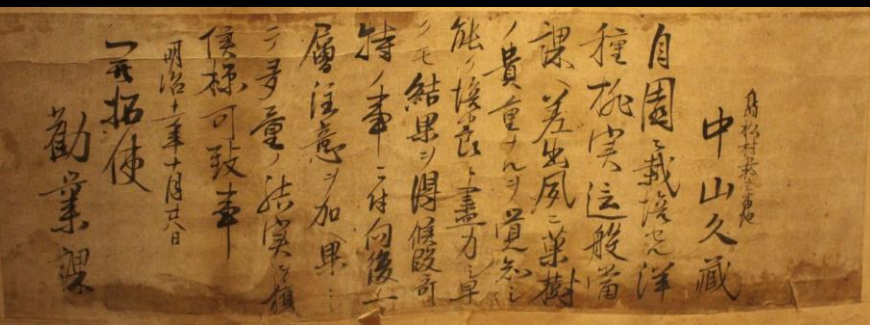 島松村
中山久藏
自園ニ栽培セル洋
種桃実這般當
課ヘ差出夙ニ菓樹
ノ貴重ナルヲ覚知シ
能ク培養ニ盡力シ早
クモ結果ヲ得候段奇
特ノ事ニ付向後一
層注意ヲ加ヘ果シ
テ多量ノ結実ヲ
候様可致事
明治十二年十月廿八日
開拓使
勸業課